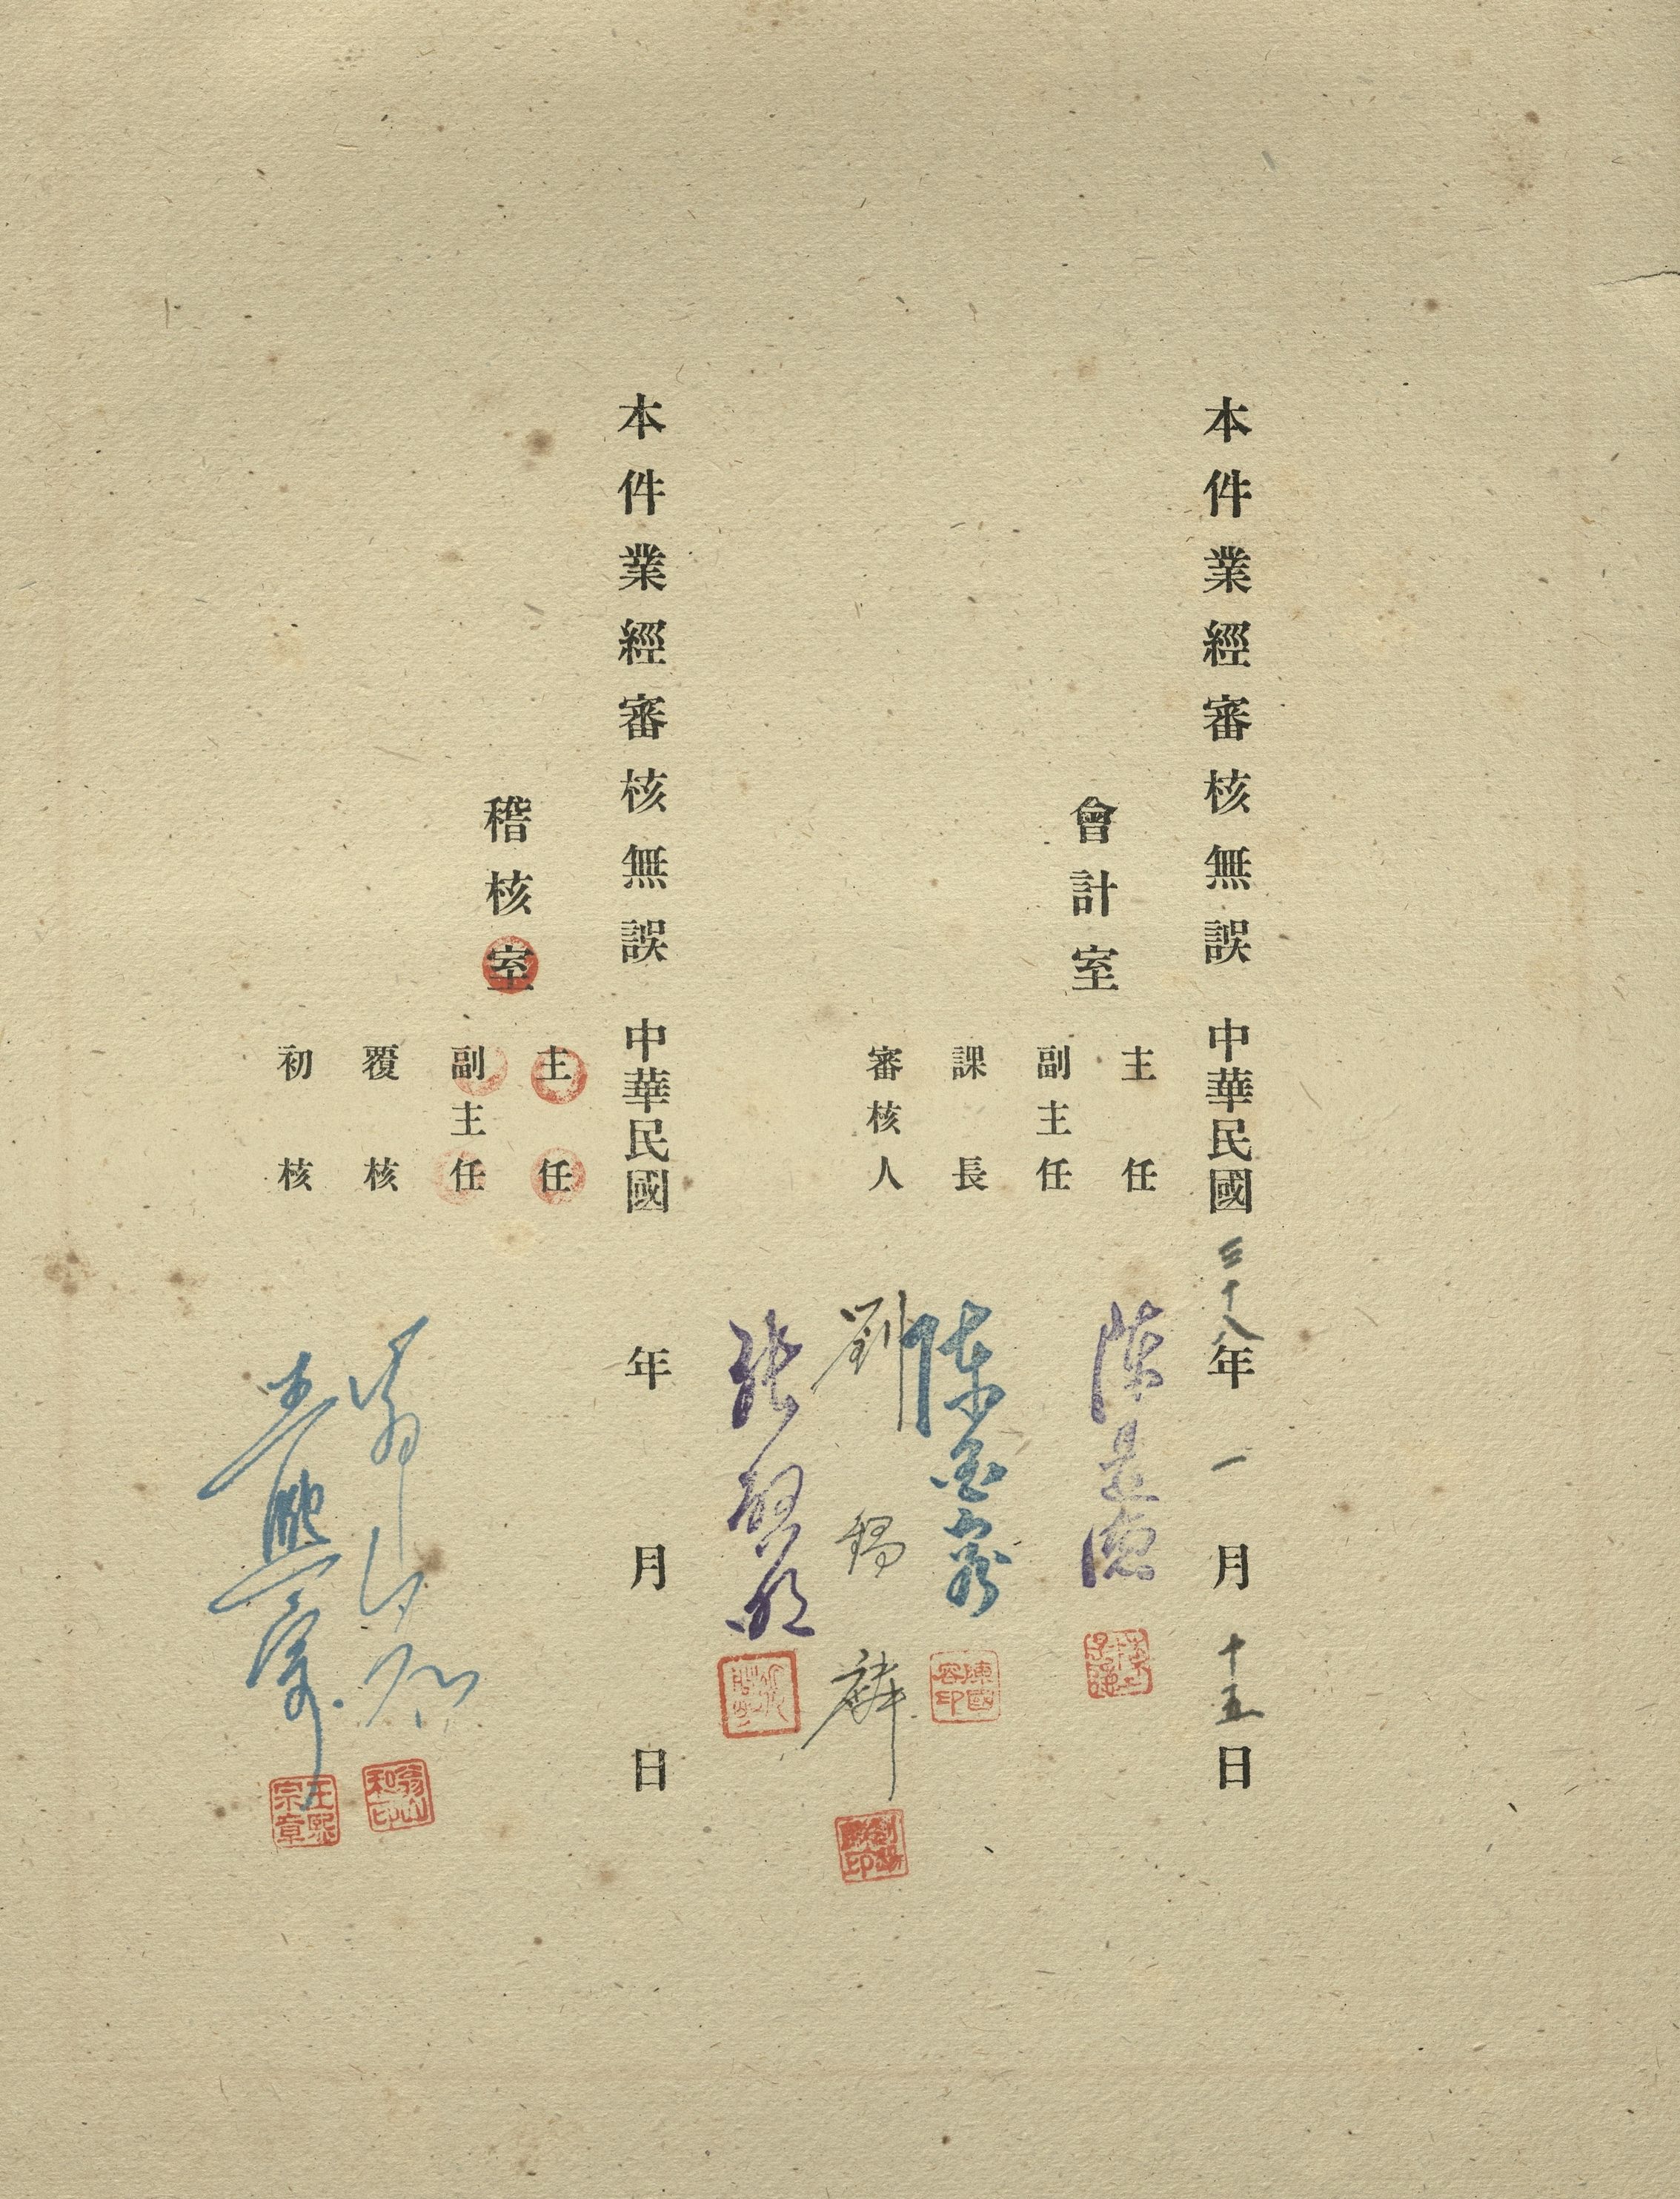 本件業經審核無誤 中華民國三十八年一月十五日
會計室
主任 陳
副主任
課長 陳國容
審核人 劉錫麟
張
陳國容印
本件業經審核無誤 中華民國 年 月 日
稽核室
主任
副主任
覆核 翁山和
初核 王熙宗
翁山和印
王熙宗章